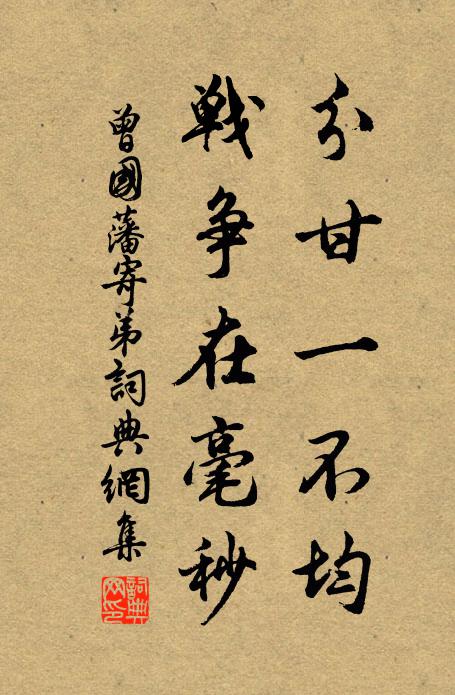 分甘一不均
戦争在毫秒
曾國藩寄弟詞典網集
詞典网印